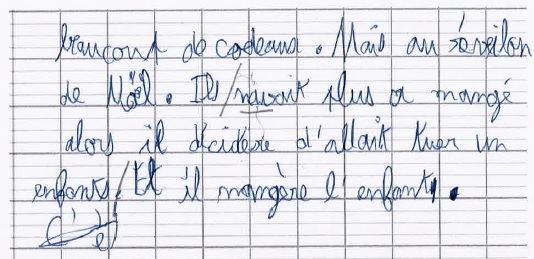 beaucoup de cadeaux. Mais au réveilon
de Noël. Ils navait plus a mangé
alors il décidère d'allait tuer un
enfants. Et il mangère l'enfant.